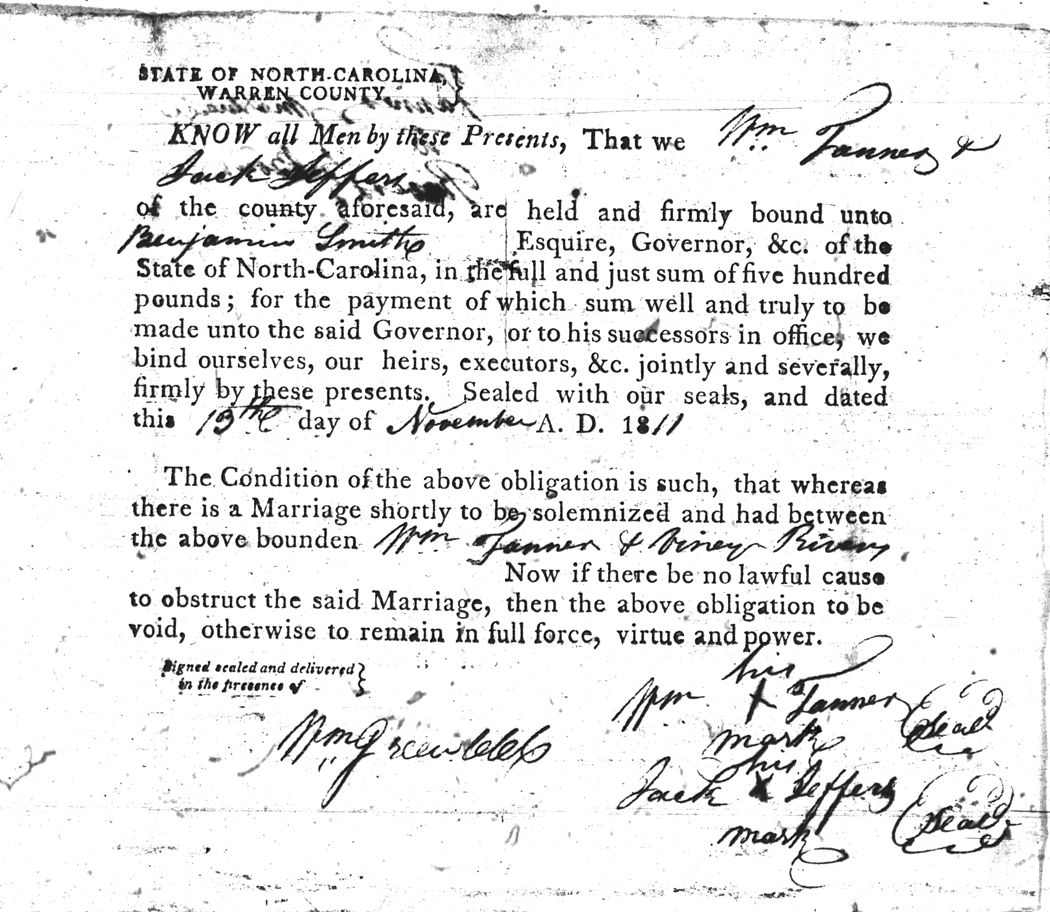 STATE OF NORTH-CAROLINA,
WARREN COUNTY.
KNOW all Men by these Presents, That we Wm Tanner &
Jack Jeffers
of the county aforesaid, are held and firmly bound unto
Benjamin Smith Esquire, Governor, &c. of the
State of North-Carolina, in the full and just sum of five hundred
pounds; for the payment of which sum well and truly to be
made unto the said Governor, or to his successors in office, we
bind ourselves, our heirs, executors, &c. jointly and severally,
firmly by these presents. Sealed with our seals, and dated
this 13th day of November A. D. 1811
The Condition of the above obligation is such, that whereas
there is a Marriage shortly to be solemnized and had between
the above bounden Wm Tanner & Viney Rivers
Now if there be no lawful cause
to obstruct the said Marriage, then the above obligation to be
void, otherwise to remain in full force, virtue and power.
Signed sealed and delivered
in the presence of
his
Wm X Tanner (Seal)
mark
Wm Green
his
Jack X Jeffers (Seal)
mark